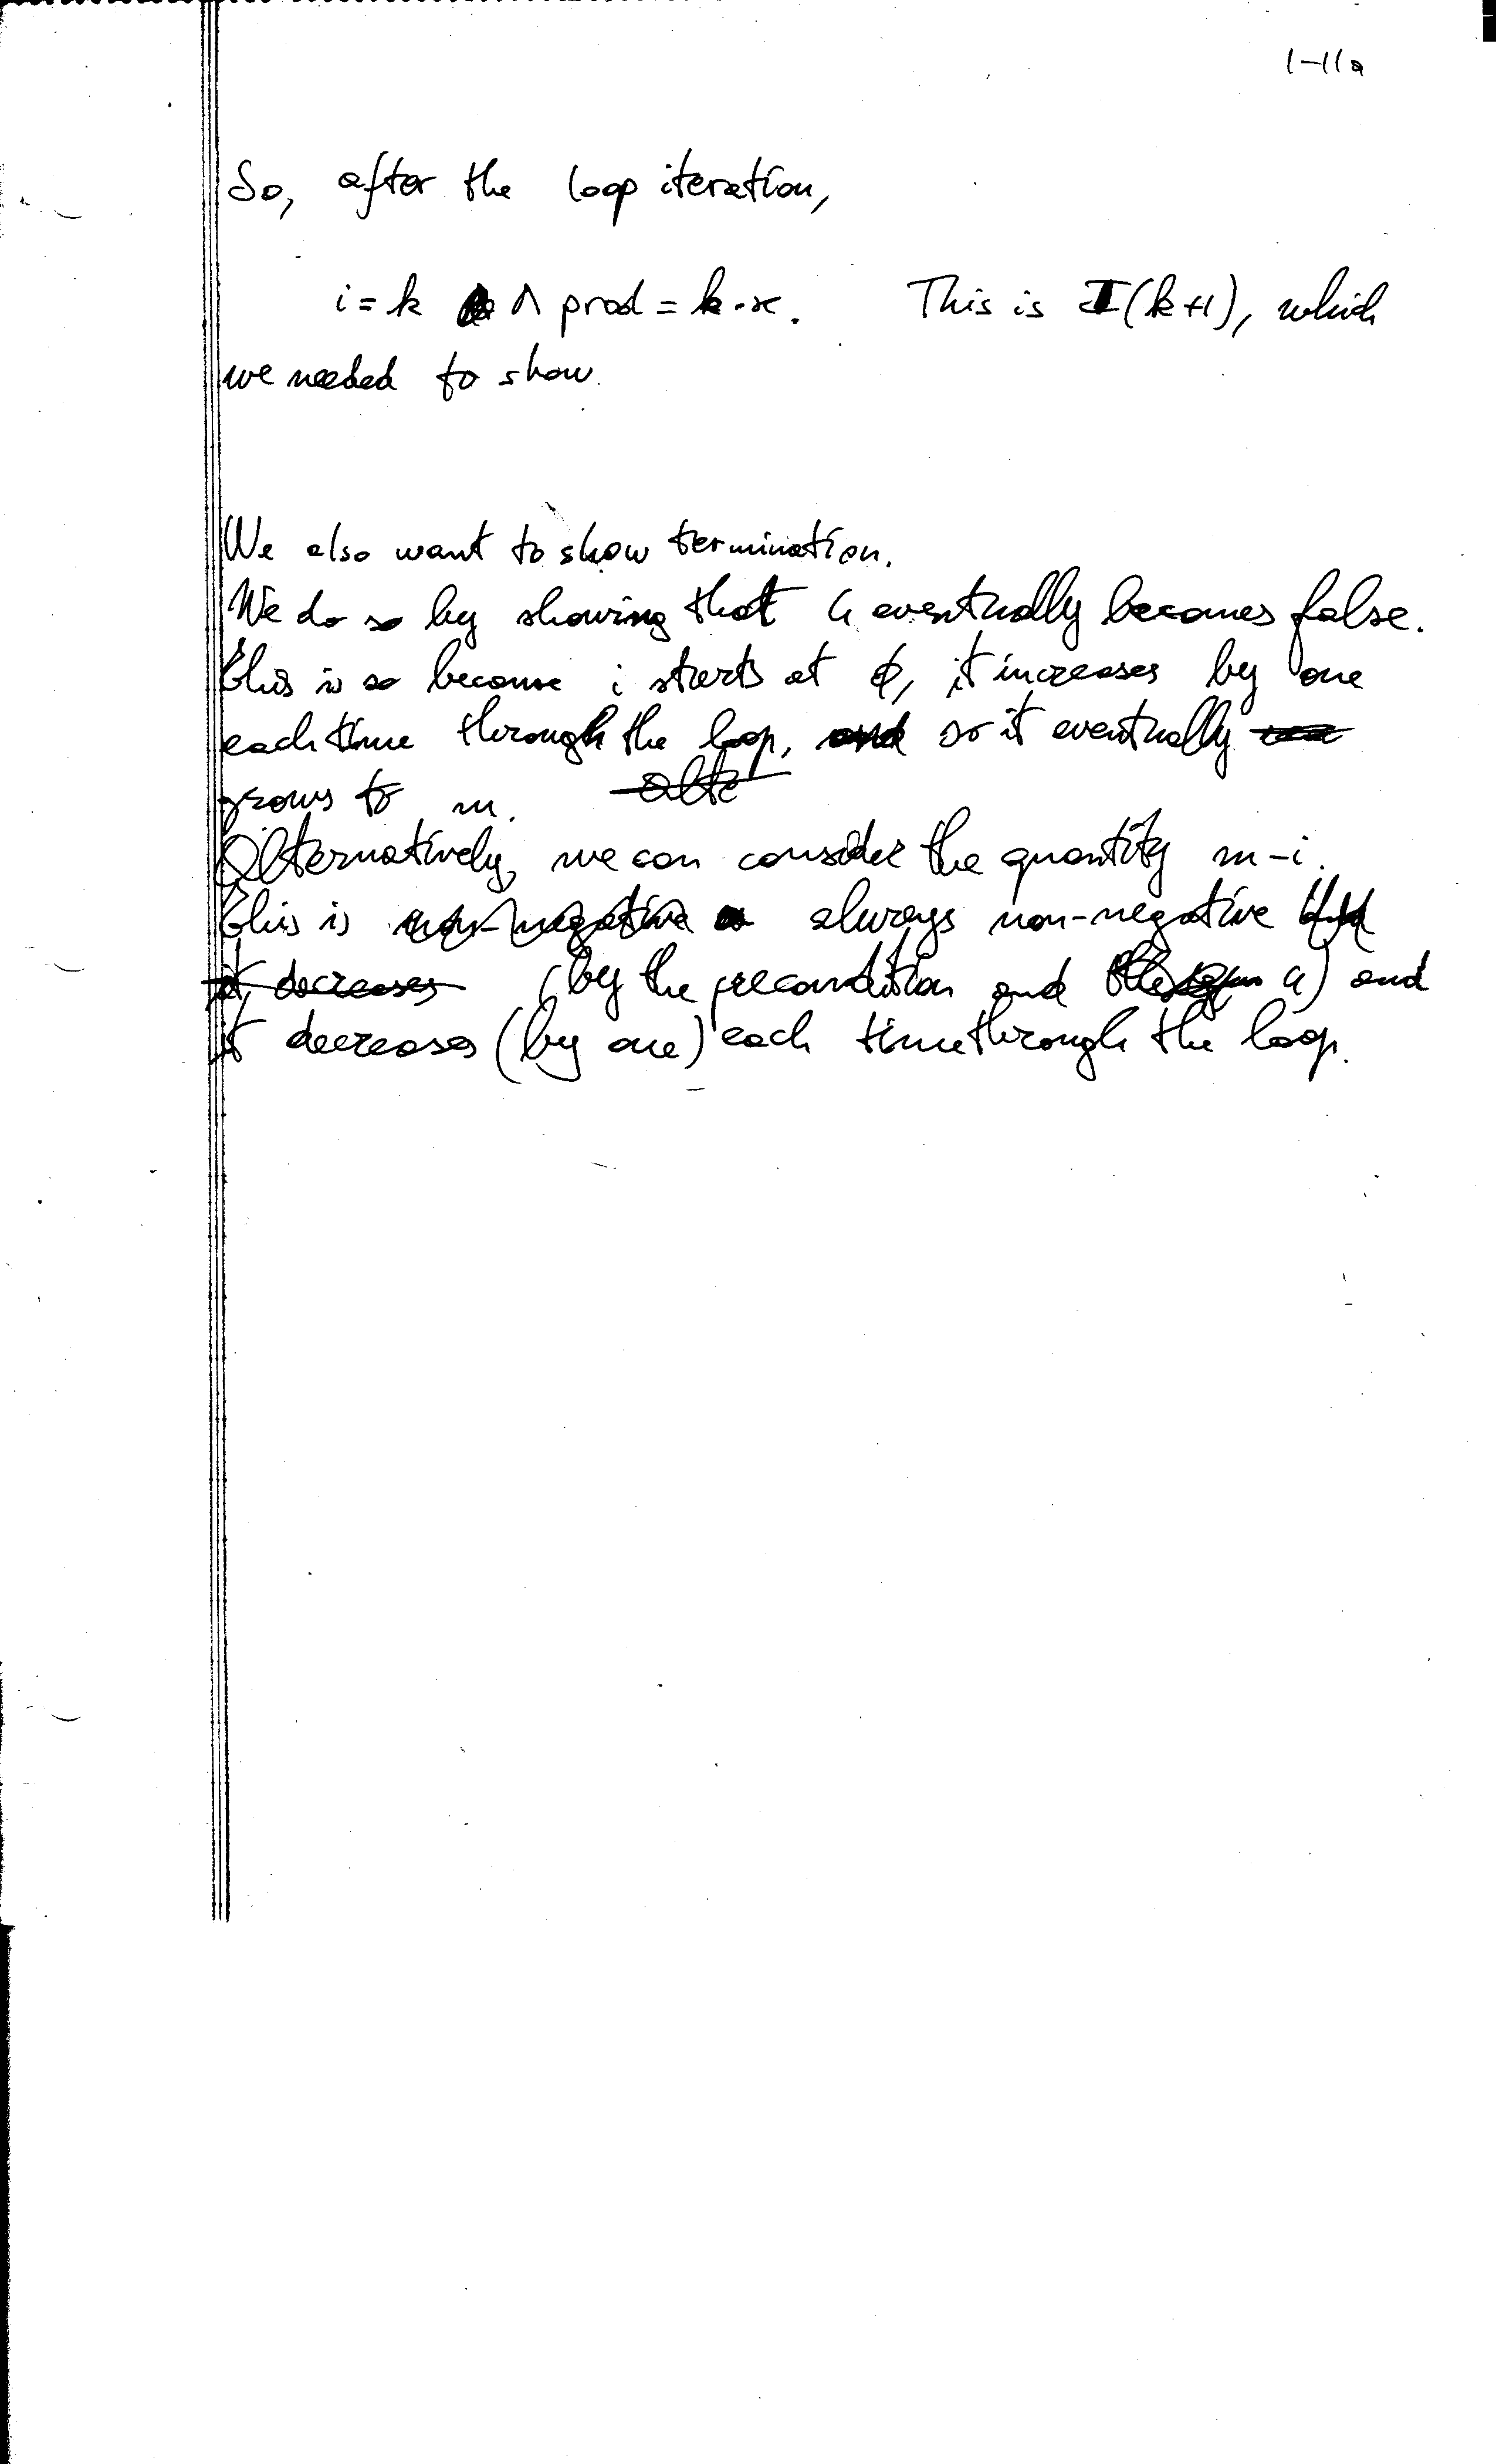 1-11a
So, after the loop iteration,
i = k ∧ prod = k·x. This is I(k+1), which
we needed to show.
We also want to show termination.
We do so by showing that G eventually becomes false.
This is so because i starts at 0, it increases by one
each time through the loop, and so it eventually
grows to m. Alte
Alternatively, we can consider the quantity m-i.
This is non-negative always non-negative and
it decreases (by the precondition and G) and
it decreases (by one) each time through the loop.